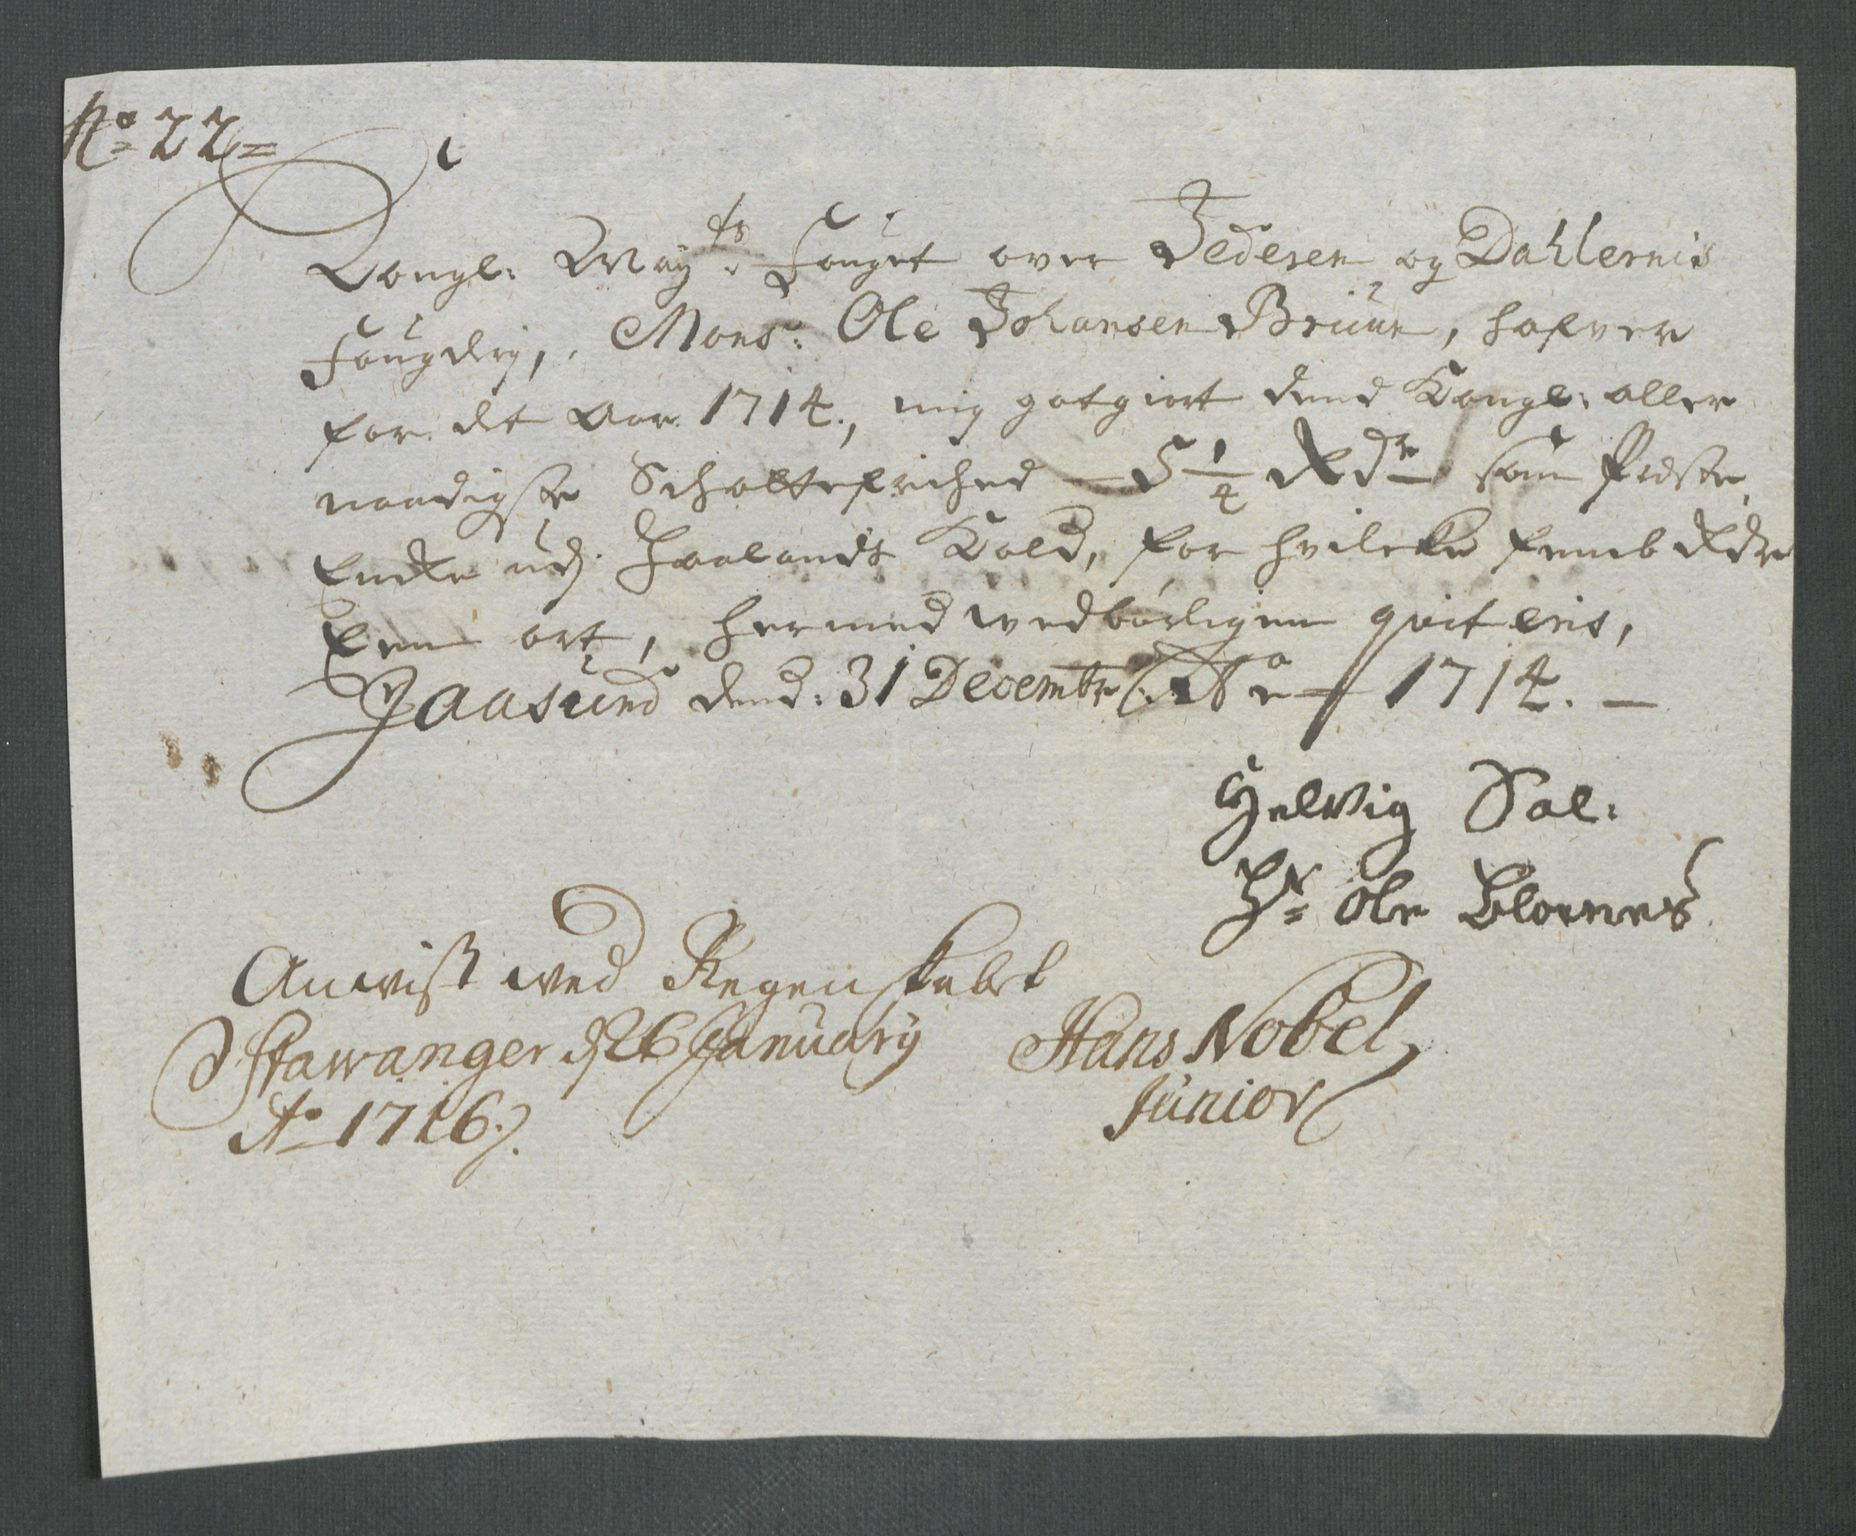 No: 22=
Kongl: May:ts Fouget over Jederen og Dahlernis
Fougdrij, Monsr: Ole Johansen Bruun, hafver
for det Aar 1714, mig gotgiort dend Kongl: aller
naadigste Schattefrihed - 5 1/4 Rdr - som Præste
Encke udj Haalands Kald, for hvilcke femb Rdr
Een ort, hermed vedbørligen qviteris,
Jaasund dend: 31 Decembr: Ao 1714. -
Helvig Sal:
Hr: Ole Bloenes
Anvist ved Regenskabet
J Stawanger d 26 January
Ao 1716.
Hans Nobel
Junior